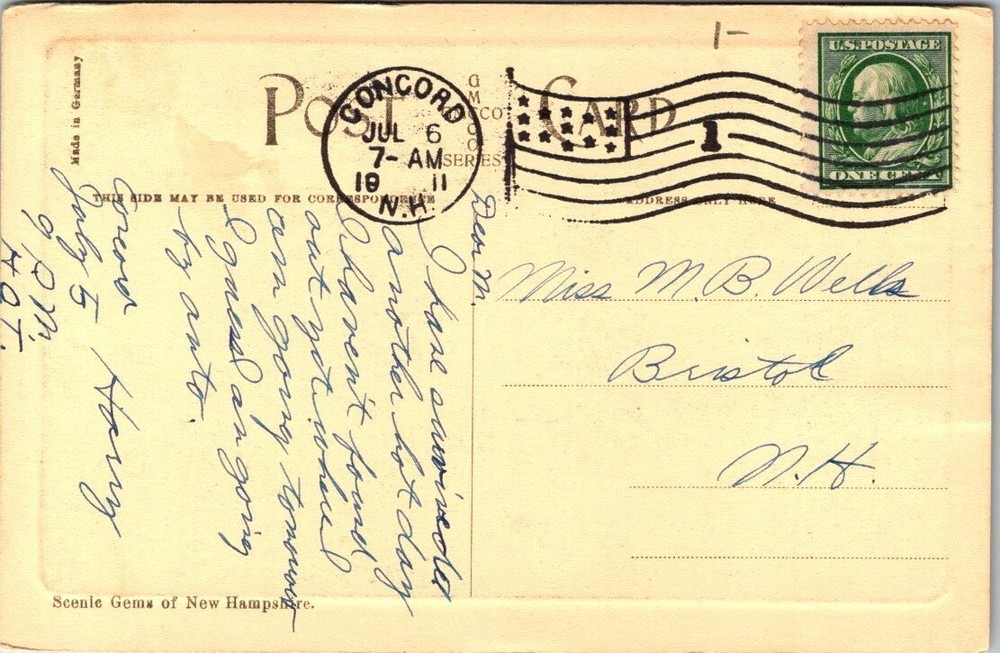 1-
U.S. POSTAGE
ONE CENT
Made in Germany
POST CARD
G
M
CO
O
O
SERIES
CONCORD
JUL 6
7-AM
19 11
N.H.
1
THIS SIDE MAY BE USED FOR CORRESPONDENCE
ADDRESS ONLY HERE
Miss M. B. Wells
Bristol
N.H.
Concord
July 5
9 P.M.
H O T.
Dear M
I have survived
another hot day
I haven't found
out yet when I
am going tomorrow
I guess I am going
by auto.
Harry
Scenic Gems of New Hampshire.